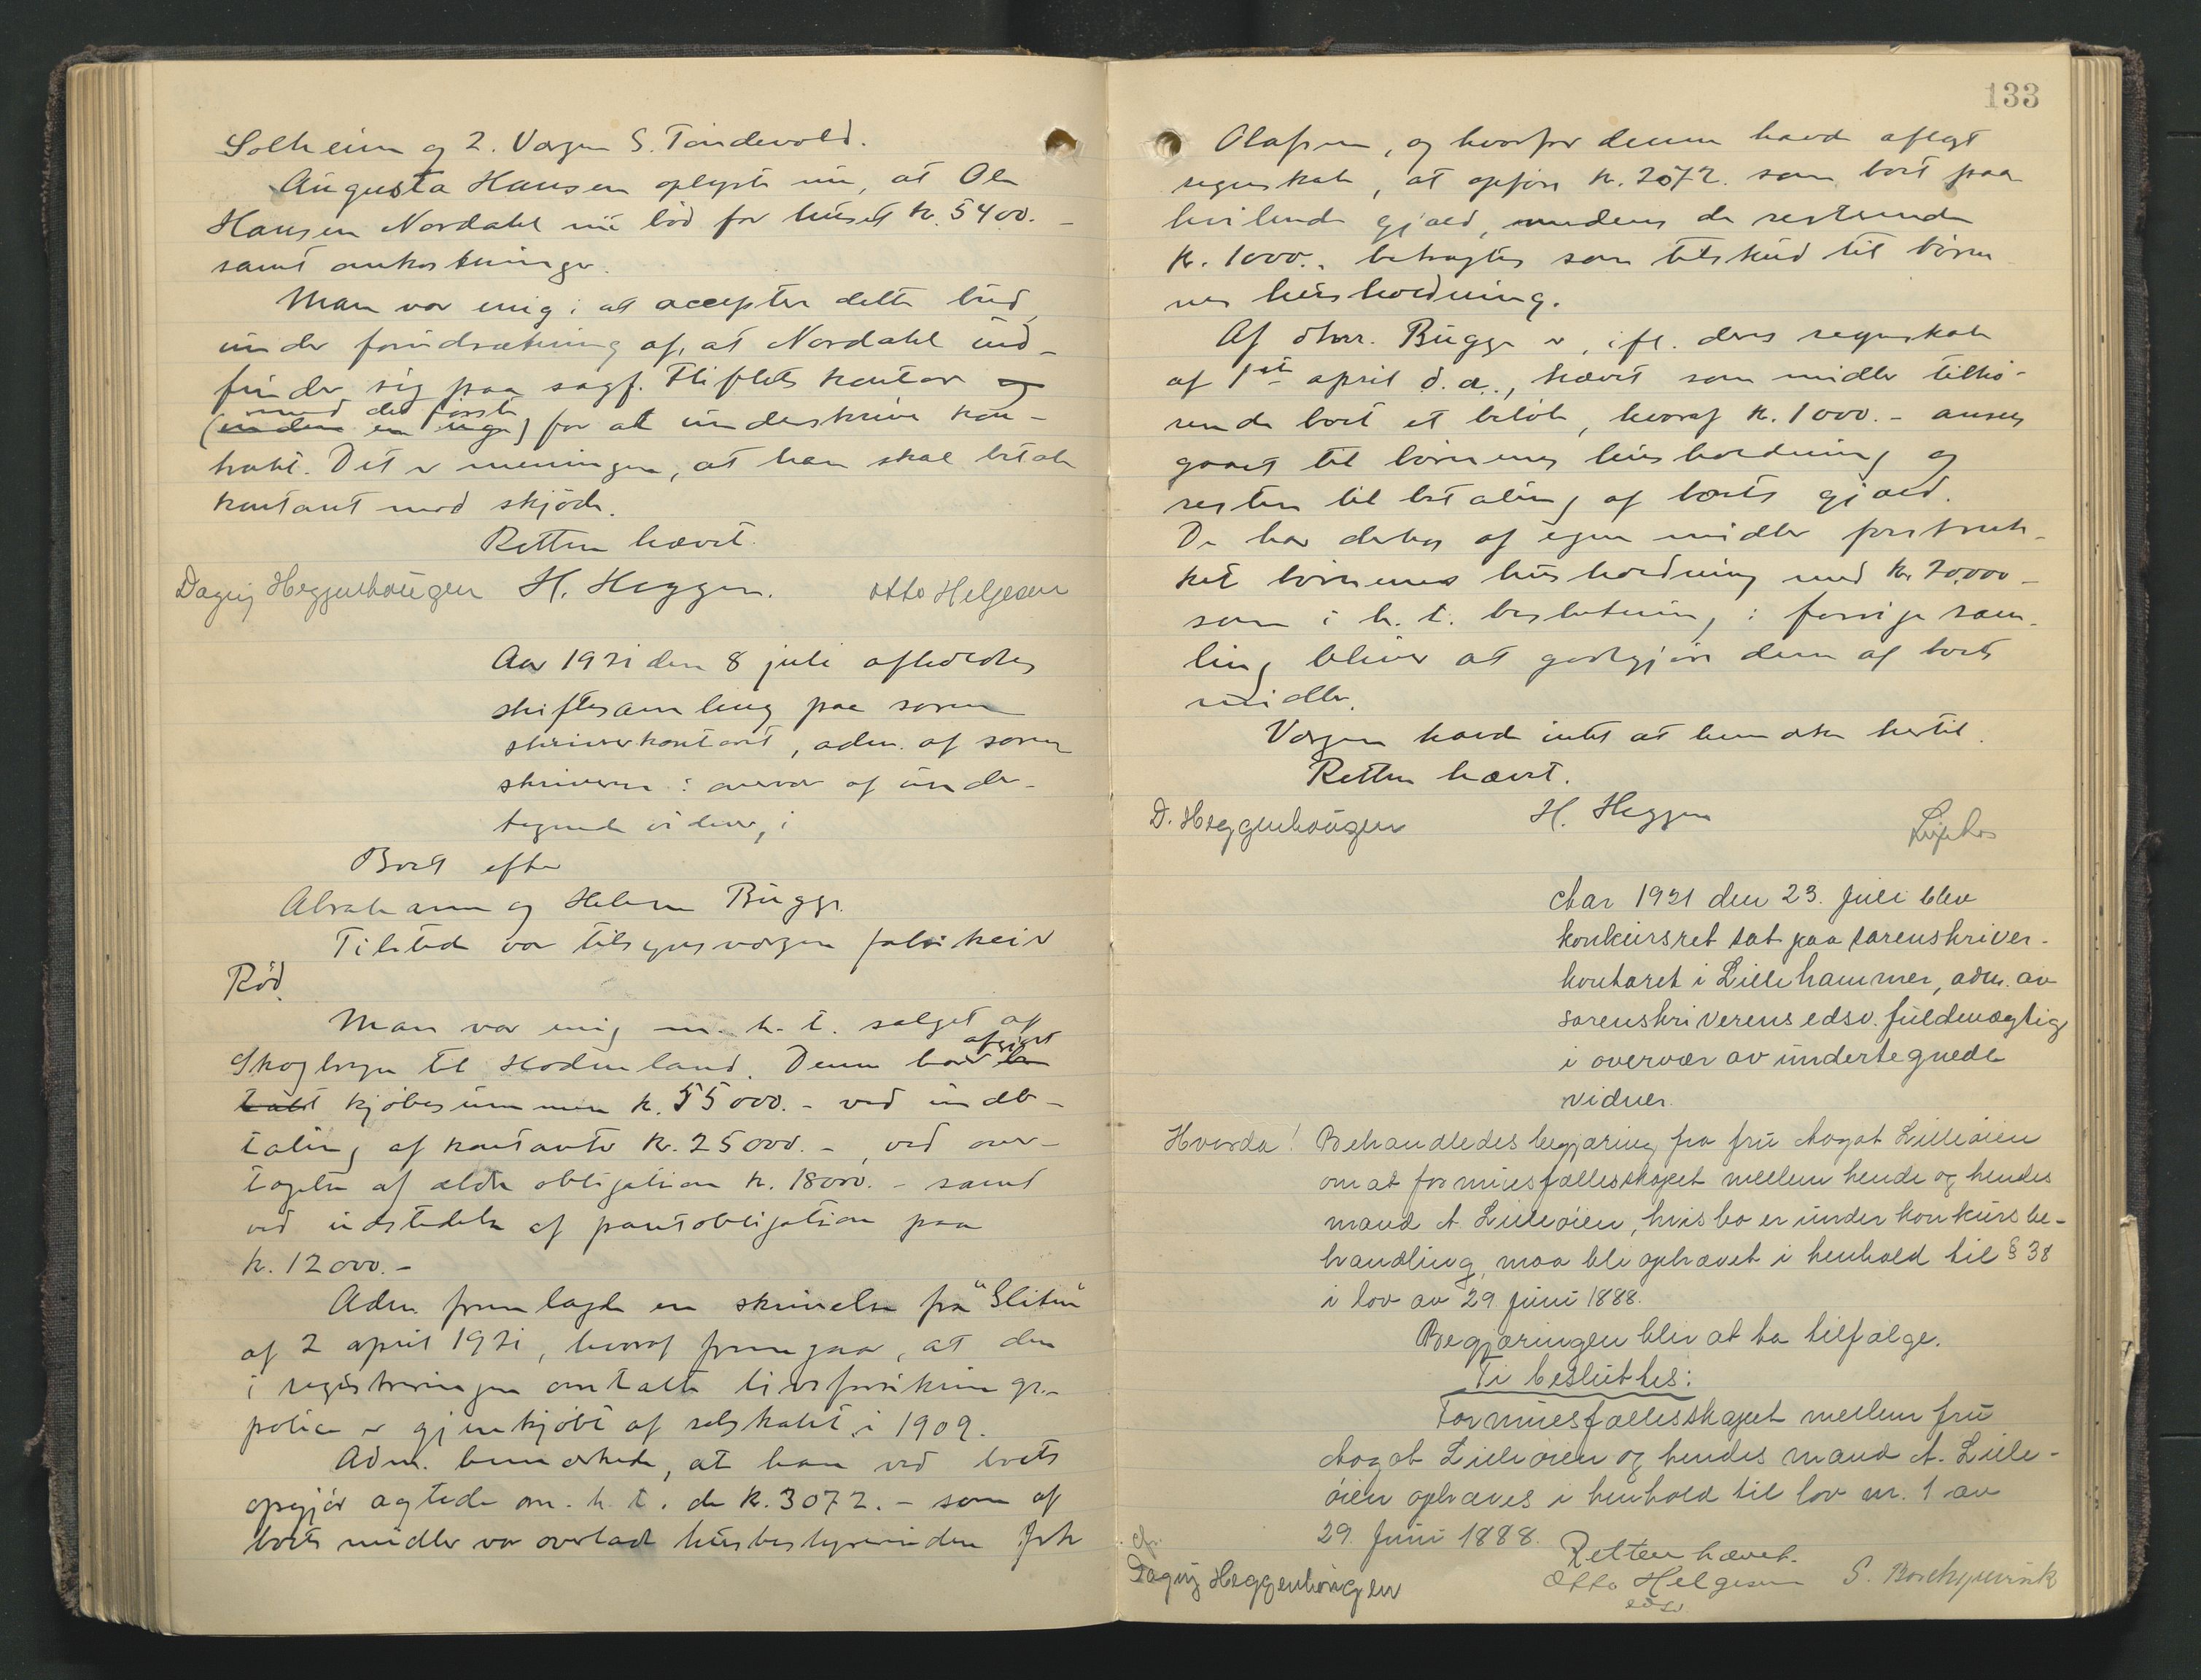 Solheim og 2. Vergen S. Tandevold.
Augusta Hansen oplyste nu, at Ole
Hansen Nordahl nu bød for huset kr. 5400.-
samt omkostninger.
Man var enig i at acceptere dette bud
under forudsætning af, at Nordahl ind-
finder sig paa sagf. Fliflets kontor og
med det første
(inden en uge) for at underskrive kon-
trakt. Det er meningen, at han skal betale
kontant mod skjøde.
Retten hævet.
Dagny Heggenhougen H. Heggen. Otto Helgesen
Aar 1921 den 8 juli afholdtes
skiftesamling paa soren
skriverkontoret, adm. af soren
skriveren i overvær af under-
tegnede vidner, i
Boet efter
Abraham og Helene Bugge.
Tilstede var tilsynsvergen fabrikeier
Rød.
Man var enig m. h. t. salget af
Skogbryn til Hodneland. Denne har
afgjort
kjøbesummen k. 55000.- ved indb-
taling af kontante k. 25000.-, ved over-
tagelse af ældre obligation k. 18000.- samt
ved udstedelse af pantobligation paa
k. 12000.-
Adm. fremlagde en skrivelse fra "Gliten"
af 2 april 1921, hvoraf fremgaar, at den
i registreringen omtalte livsforsikrings-
police er gjenkjøbt af selskabet i 1909.
Adm. bemærkede, at han ved boets
opgjør agtede m. h. t. de k. 3072.- som af
boets midler var overladt husbestyrerinden frk
133
Olafsen, og hvorfor denne havde aflagt
regnskab, at opføre k. 2072. som boet paa
hvilende gjæld, medens de resterende
k. 1000.- betragtes som tilskud til børne
nes husholdning.
Af dhrr. Bugge er, ifl. deres regnskab
af 1st april d.a., hævet som midler tilhø-
rende boet et beløb, hvoraf k. 1000.- ansees
gaaet til børnenes husholdning og
resten til betaling af boets gjæld.
De har derhos af egne midler forstræk-
ket børnenes husholdning med kr. 20.000-
som i h. t. beslutning i forrige sam-
ling bliver at godtgjøre dem af boets
midler.
Vergen havde intet at bemærke hertil.
Retten hævet.
D. Heggenhougen H. Heggen
Aar 1921 den 23. Juli blev
konkursret sat paa sorenskriver-
kontoret i Lillehammer, adm. av
sorenskriverens edsv. fuldmægtig
i overvær av undertegnede
vidner.
Hvorda! Behandledes begjæring fra fru Aagot Lilleøien
om at formuesfællesskapet mellem hende og hendes
mand A. Lilleøien, hvis bo er under konkursbe-
handling, maa bli ophævet i henhold til § 38
i lov av 29. Juni 1888.
Begjæringen blir at ta tilfølge.
Ti besluttes:
Formuesfællesskapet mellem fru
Aagot Lilleøien og hendes mand A. Lille-
øien ophæves i henhold til lov nr. 1 av
29. Juni 1888.
Retten hævet.
Dagny Heggenhougen Otto Helgesen S. Borchgrevink
edsv